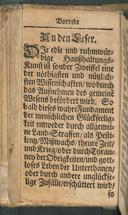 Vorrede
An den Leser.
Die edle und ruhmwür-
dige Haußhaltungs-
Kunst ist sonder Zweifel eine
der nöthigsten und nützlich-
sten Wissenschaften, wodurch
das Aufnehmen des gemeinen
Wesens befördert wird. So
bald dieses wahre Fundament
der menschlichen Glückseelig-
keit entweder durch allgemei-
ne Land-Straffen, als Pesti-
lentz, Mißwachs, theure Zeit
und Krieg, oder durch
der Obrigkeiten, und gott-
loses Leben der Unterthanen,
oder durch andere unglücksee-
lige Zufälle, erschüttert wird,
so